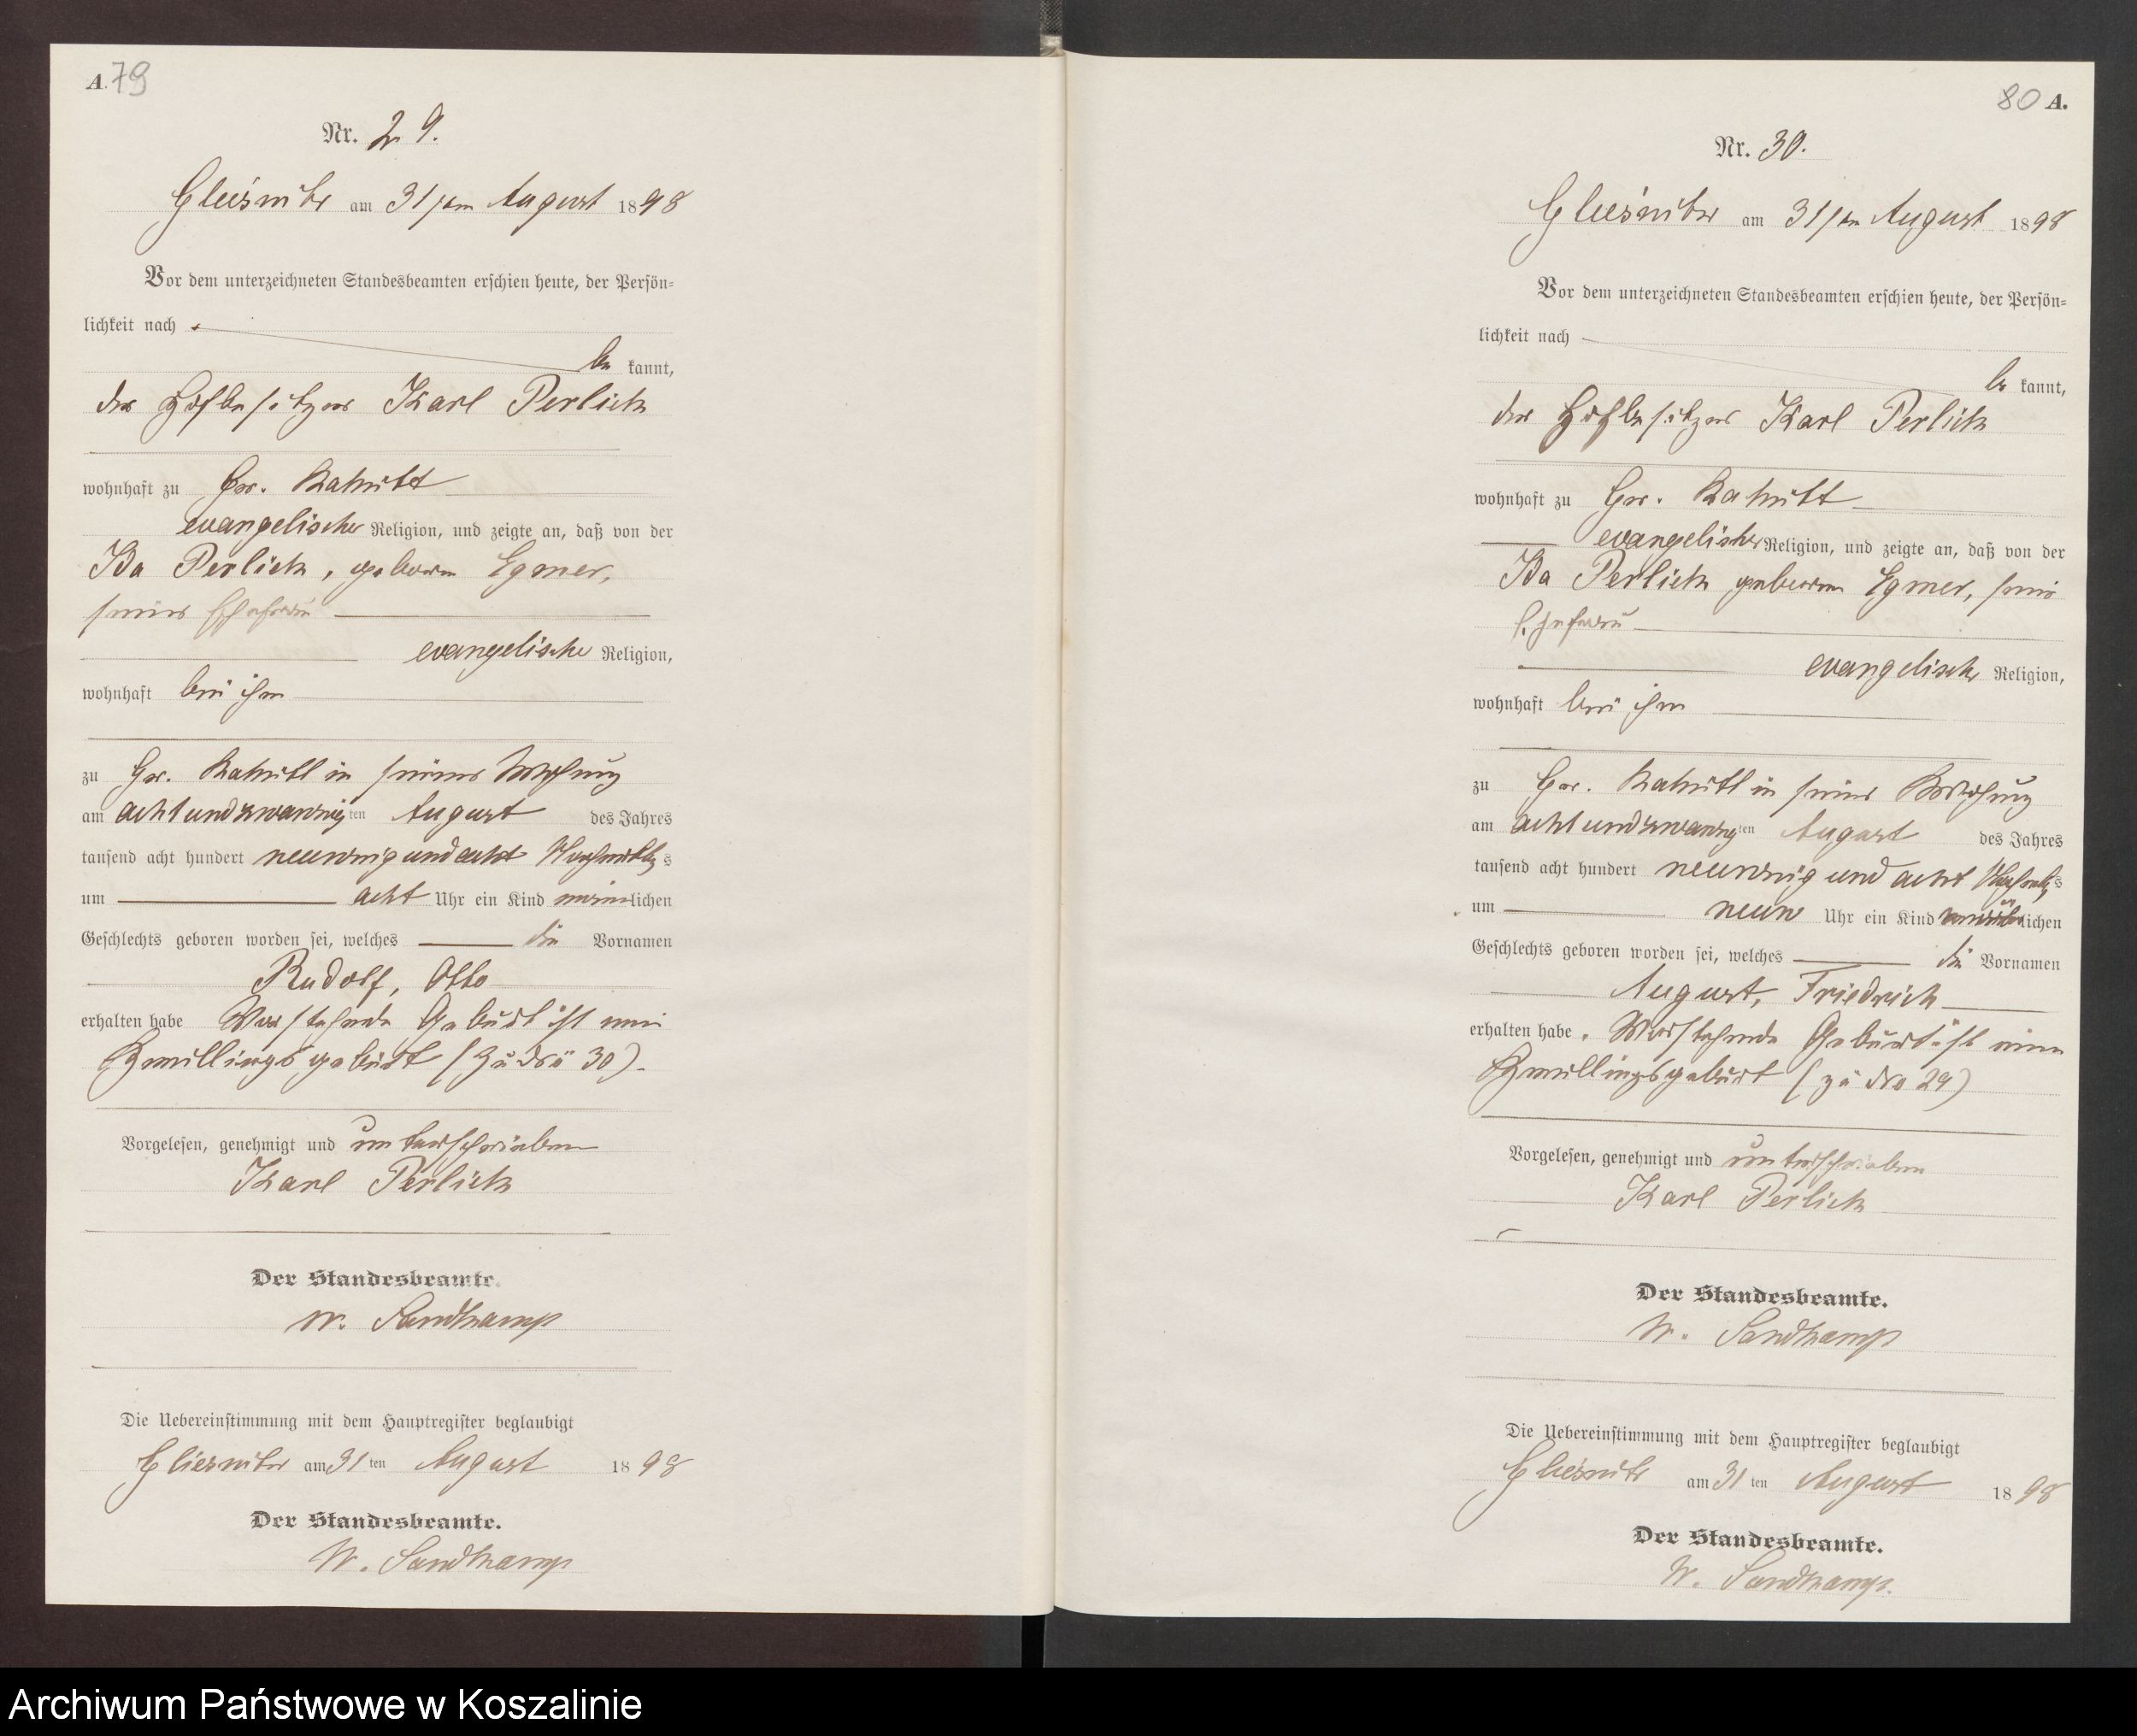 A. 79
Nr. 29.
Gliesnitz am 31ten August 1898
Vor dem unterzeichneten Standesbeamten erschien heute, der Persön=
lichkeit nach
be kannt,
der Hofbesitzer Karl Perlick
wohnhaft zu Gr.
evangelischer Religion, und zeigte an, daß von der
Ida Perlick, geborne Egmer,
seiner Ehefrau
evangelische Religion,
wohnhaft bei ihm
zu Gr. in seiner Wohnung
am achtundzwanzigten August des Jahres
tausend acht hundert neunzig und acht Nachmittags
um acht Uhr ein Kind männlichen
Geschlechts geboren worden sei, welches die Vornamen
Rudolf, Otto
erhalten habe Vorstehende Geburt ist eine
Zwillingsgeburt (zu No 30).
Vorgelesen, genehmigt und unterschrieben
Karl Perlick
Der Standesbeamte.
W. Sandkamp
Die Uebereinstimmung mit dem Hauptregister beglaubigt
Gliesnitz am 31ten August 1898
Der Standesbeamte.
W. Sandkamp
80 A.
Nr. 30.
Gliesnitz am 31ten August 1898
Vor dem unterzeichneten Standesbeamten erschien heute, der Persön=
lichkeit nach
be kannt,
der Hofbesitzer Karl Perlick
wohnhaft zu Gr.
evangelischer Religion, und zeigte an, daß von der
Ida Perlick geborne Egmer, seine
Ehefrau
evangelische Religion,
wohnhaft bei ihm
zu Gr. in seiner Wohnung
am achtundzwanzigten August des Jahres
tausend acht hundert neunzig und acht Nachmittags
um neun Uhr ein Kind männlichen
Geschlechts geboren worden sei, welches die Vornamen
August, Friedrich
erhalten habe. Vorstehende Geburt ist eine
Zwillingsgeburt (zu No 29)
Vorgelesen, genehmigt und unterschrieben
Karl Perlick
Der Standesbeamte.
W. Sandkamp
Die Uebereinstimmung mit dem Hauptregister beglaubigt
Gliesnitz am 31ten August 1898
Der Standesbeamte.
W. Sandkamp.
Archiwum Państwowe w Koszalinie